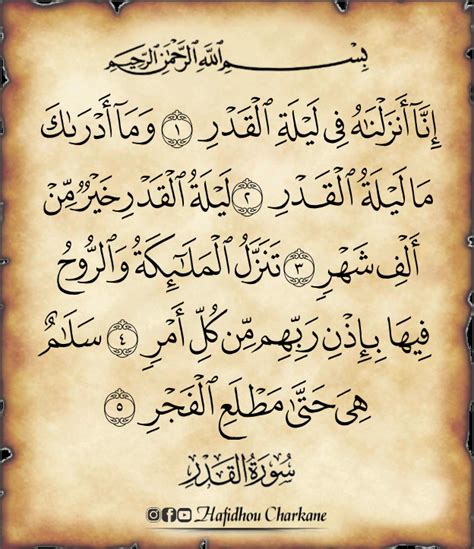 بِسْمِ ٱللَّهِ ٱلرَّحْمَٰنِ ٱلرَّحِيمِ
إِنَّآ أَنزَلْنَٰهُ فِى لَيْلَةِ ٱلْقَدْرِ ١ وَمَآ أَدْرَىٰكَ
مَا لَيْلَةُ ٱلْقَدْرِ ٢ لَيْلَةُ ٱلْقَدْرِ خَيْرٌ مِّنْ
أَلْفِ شَهْرٍ ٣ تَنَزَّلُ ٱلْمَلَٰٓئِكَةُ وَٱلرُّوحُ
فِيهَا بِإِذْنِ رَبِّهِم مِّن كُلِّ أَمْرٍ ٤ سَلَٰمٌ
هِىَ حَتَّىٰ مَطْلَعِ ٱلْفَجْرِ ٥
سُورَةُ القَدْرِ
Hafidhou Charkane